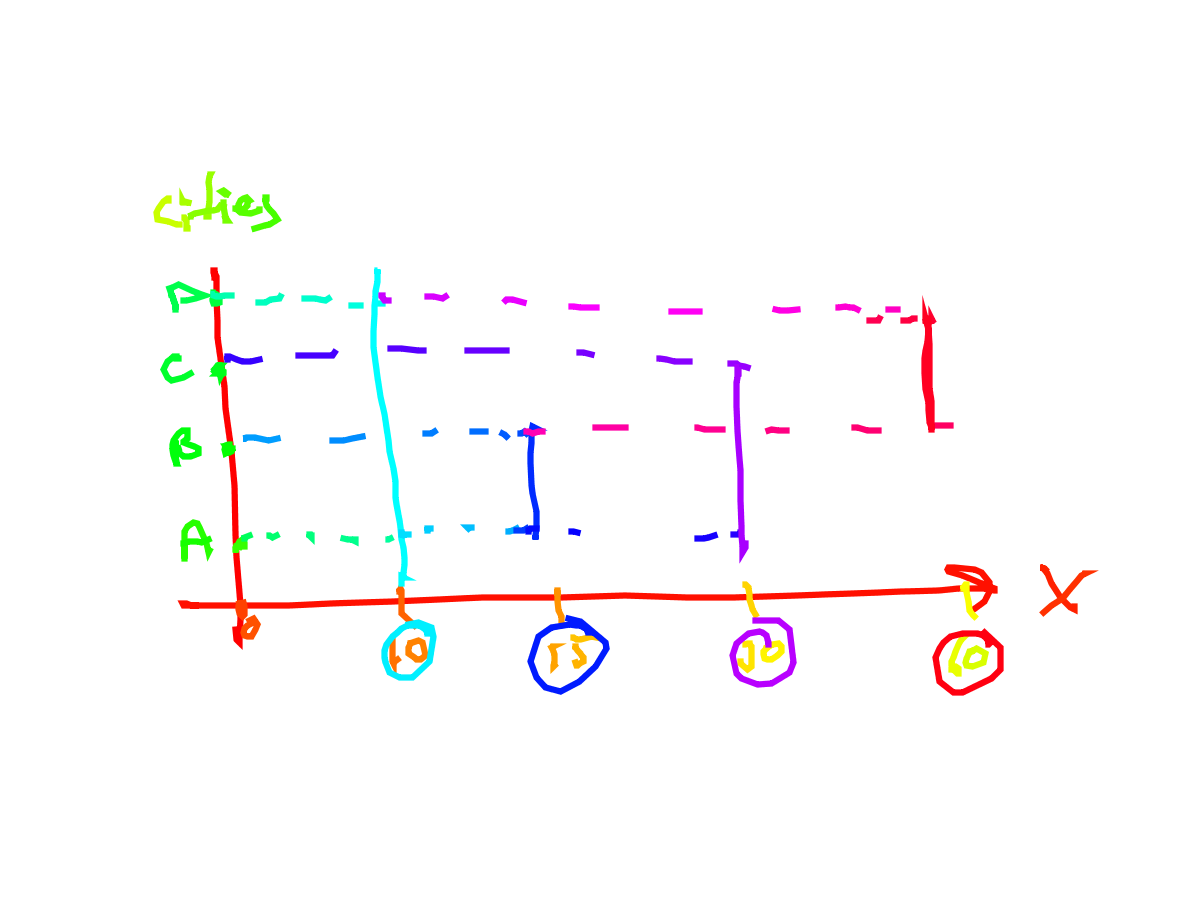 cities
D
C
B
A
X
0 10 15 30 60